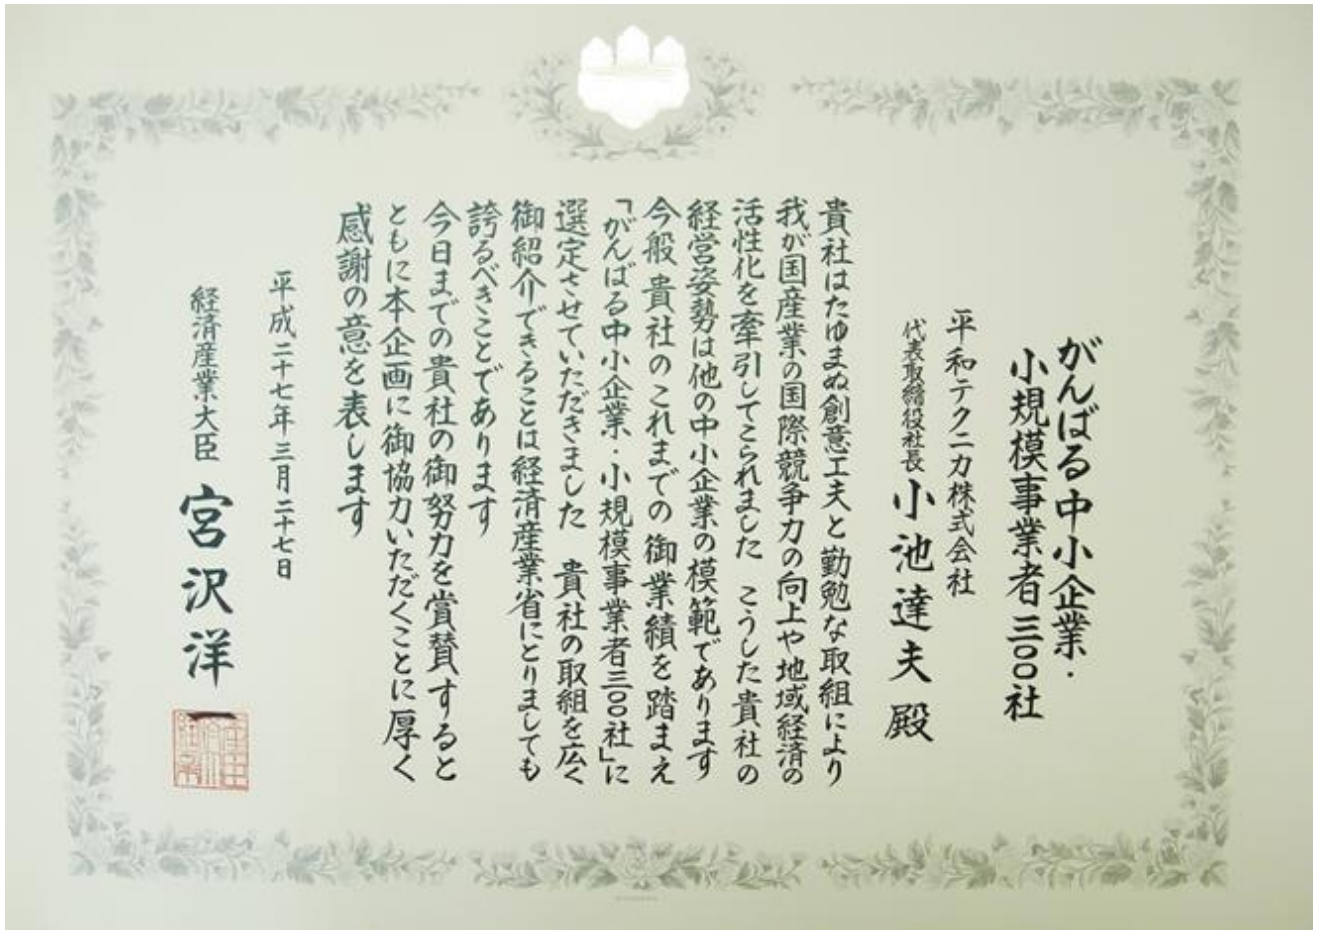 がんばる中小企業・
小規模事業者三〇〇社
平和テクニカ株式会社
代表取締役社長 小池達夫 殿
貴社はたゆまぬ創意工夫と勤勉な取組により
我が国産業の国際競争力の向上や地域経済の
活性化を牽引してこられました こうした貴社の
経営姿勢は他の中小企業の模範であります
今般 貴社のこれまでの御業績を踏まえ
「がんばる中小企業・小規模事業者三〇〇社」に
選定させていただきました 貴社の取組を広く
御紹介できることは経済産業省にとりましても
誇るべきことであります
今日までの貴社の御努力を賞賛すると
ともに本企画に御協力いただくことに厚く
感謝の意を表します
平成二十七年三月二十七日
経済産業大臣 宮沢洋一